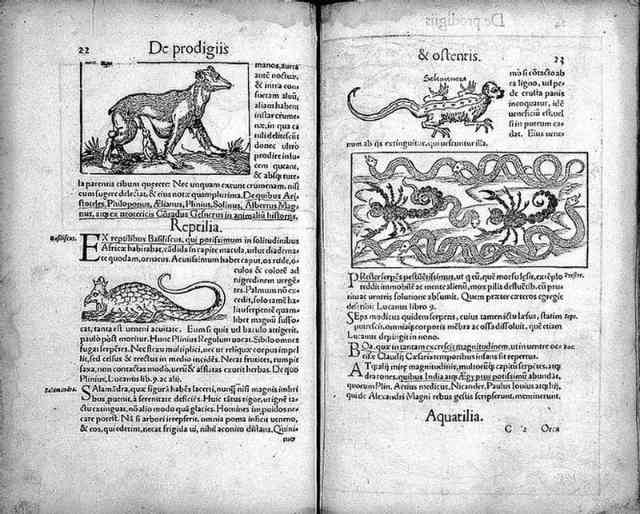 22
De prodigiis
& intra con
aliam habens
donec ultro
& absq; tute-
la parentis cibum quærere: Nec unquam exeunt crumenam, nisi
cum sugere delectat, & eius notæ quamplurima. De quibus Ari-
stoteles, Philoponus, Ælianus, Plinius, Solinus, Albertus Mag-
nus, atq; ex neotericis Cōradus Gesnerus in animaliū historijs.
Reptilia.
Basiliscus.
EX reptilibus Basiliscus, qui potissimum in solitudinibus
Africæ habitabat, cādida in capite macula, ut
te quodam, ornatus. Acuissimum habet caput, os
culos & colore ad
nigredinem
Palmum nō ex-
cedit, solo tamē ha-
litu serpentē quam-
libet magnū suffo-
cat, tanta est ueneni acuitate. Eum si quis uel baculo attigerit,
paulo pōst moritur. Hunc Plinius Regulum uocat. Sibilo omnes
fugat serpētes. Nec flexu multiplici, uec ut reliquæ corpus impel
lit, sed celsus & erectus in medio incēdēs. Necat frutices, rumpit
saxa, non contactos modo, uerū & afflatos exurit herbas. De quo
Plinius, Lucanus lib. 9. ac alij.
Salamādra.
SAlamādra, quæ figurā habēs lacerti, nunqā nisi magnis imbri
bus prouenit, & serenitate deficiēs. Huic tātus rigor, ut ignē ta-
ctu extinguat, nō alio modo quā glacies. Homines impuidos ne-
care potest. Nā si arbori irrepserit, omnia poma inficit ueneno,
& eos, qui ederint, necat frigida ui, nihil aconito distans. Quini-
mo
& ostentis.
23
Salamandra
mō si cōtacto ab
ea ligno, uel pe-
de crusta panis
incoquatur, idē
ueneficiū est, uel
si in puteum ca-
dat. Eius uene-
num ab ijs extinguitur, qui uescuntur illa.
Prester.
PRester serpēs pestilētissimus, ut q eū, quē morsu læsit, extēplo
reddit immobilē ac mente alienū, mox pilis desluētib. cū pru-
ritu ac uentris solutione absumit. Quem præter cæteros egregiè
describit Lucanus libro 9.
SEps modicus quidem serpens, cuius tamen ictu læsus, statim
putrescit, omniaq; corporis mēbra ac ossa dissoluit, quē etiam
Lucanus depingit in
BOa, quæ in tantam excrescit magnitudinem, ut in uentre occi-
sæ Claudij Cæsaris temporibus infans sit repertus.
AT q; alij miræ magnitudinis, multorumq; capitū serpētes, atq;
dracones, quibus India atq; Ægyptus potissimū abundāt,
quorum Plin. Aetius medicus, Nicander, Paulus Iouius atq; alij,
qui de Alexandri Magni rebus gestis scripserunt, meminerunt.
Aquatilia.
C 2 Orca